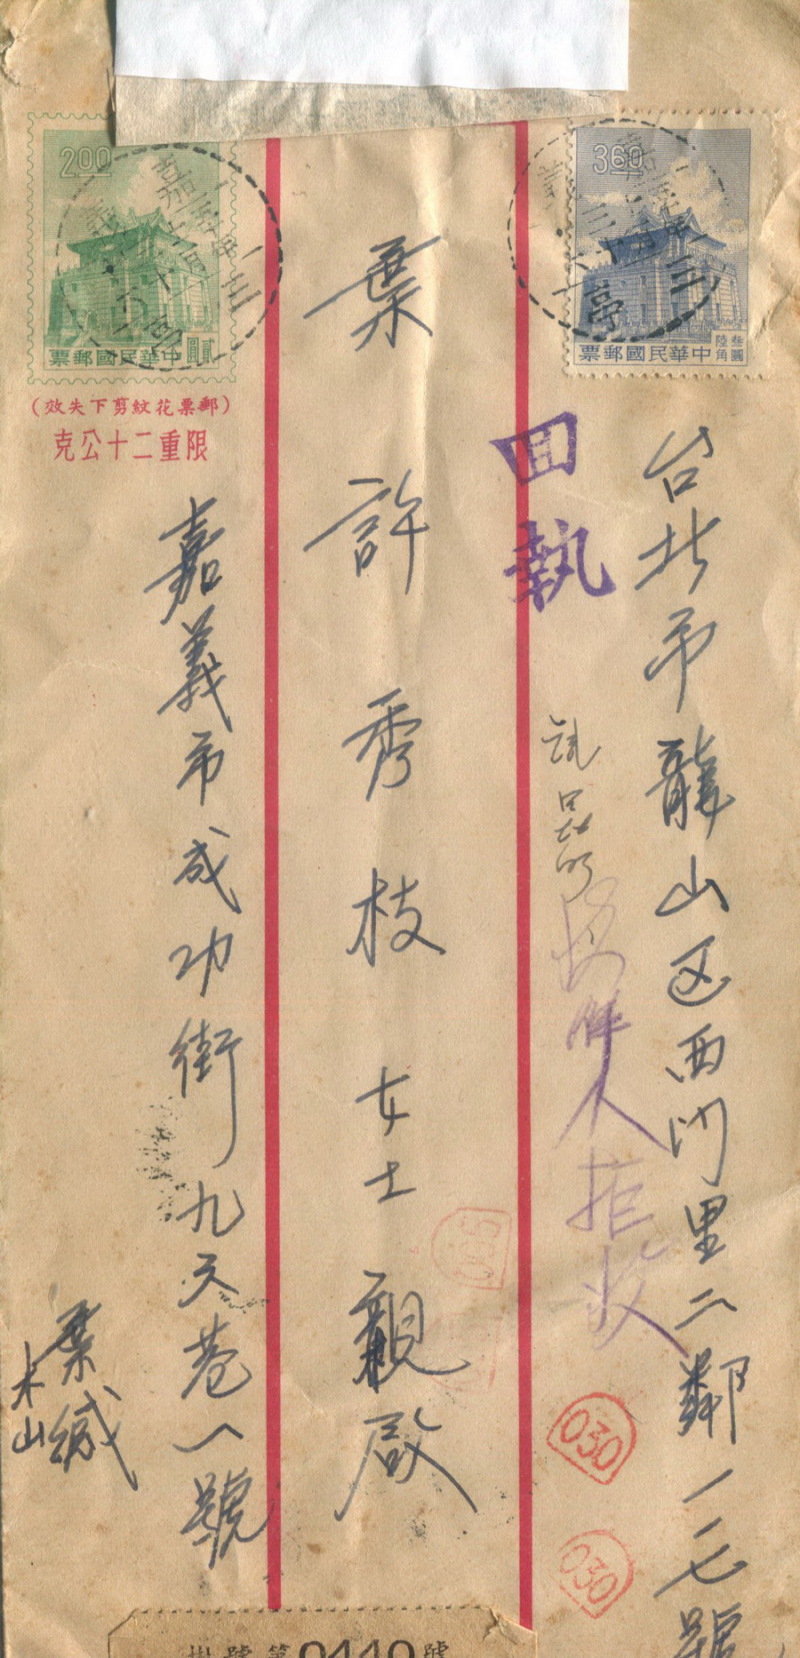 3.60
中華民國郵票
叁圓
陸角
2.00
中華民國郵票
貳圓
(郵票花紋剪下失效)
限重二十公克
回執
台北市龍山区西门里二鄰一一七號
收件人拒收
葉許秀枝女士親啟
嘉義市成功街九天巷一號
葉緘
木山
035
030
030
掛號第0440號